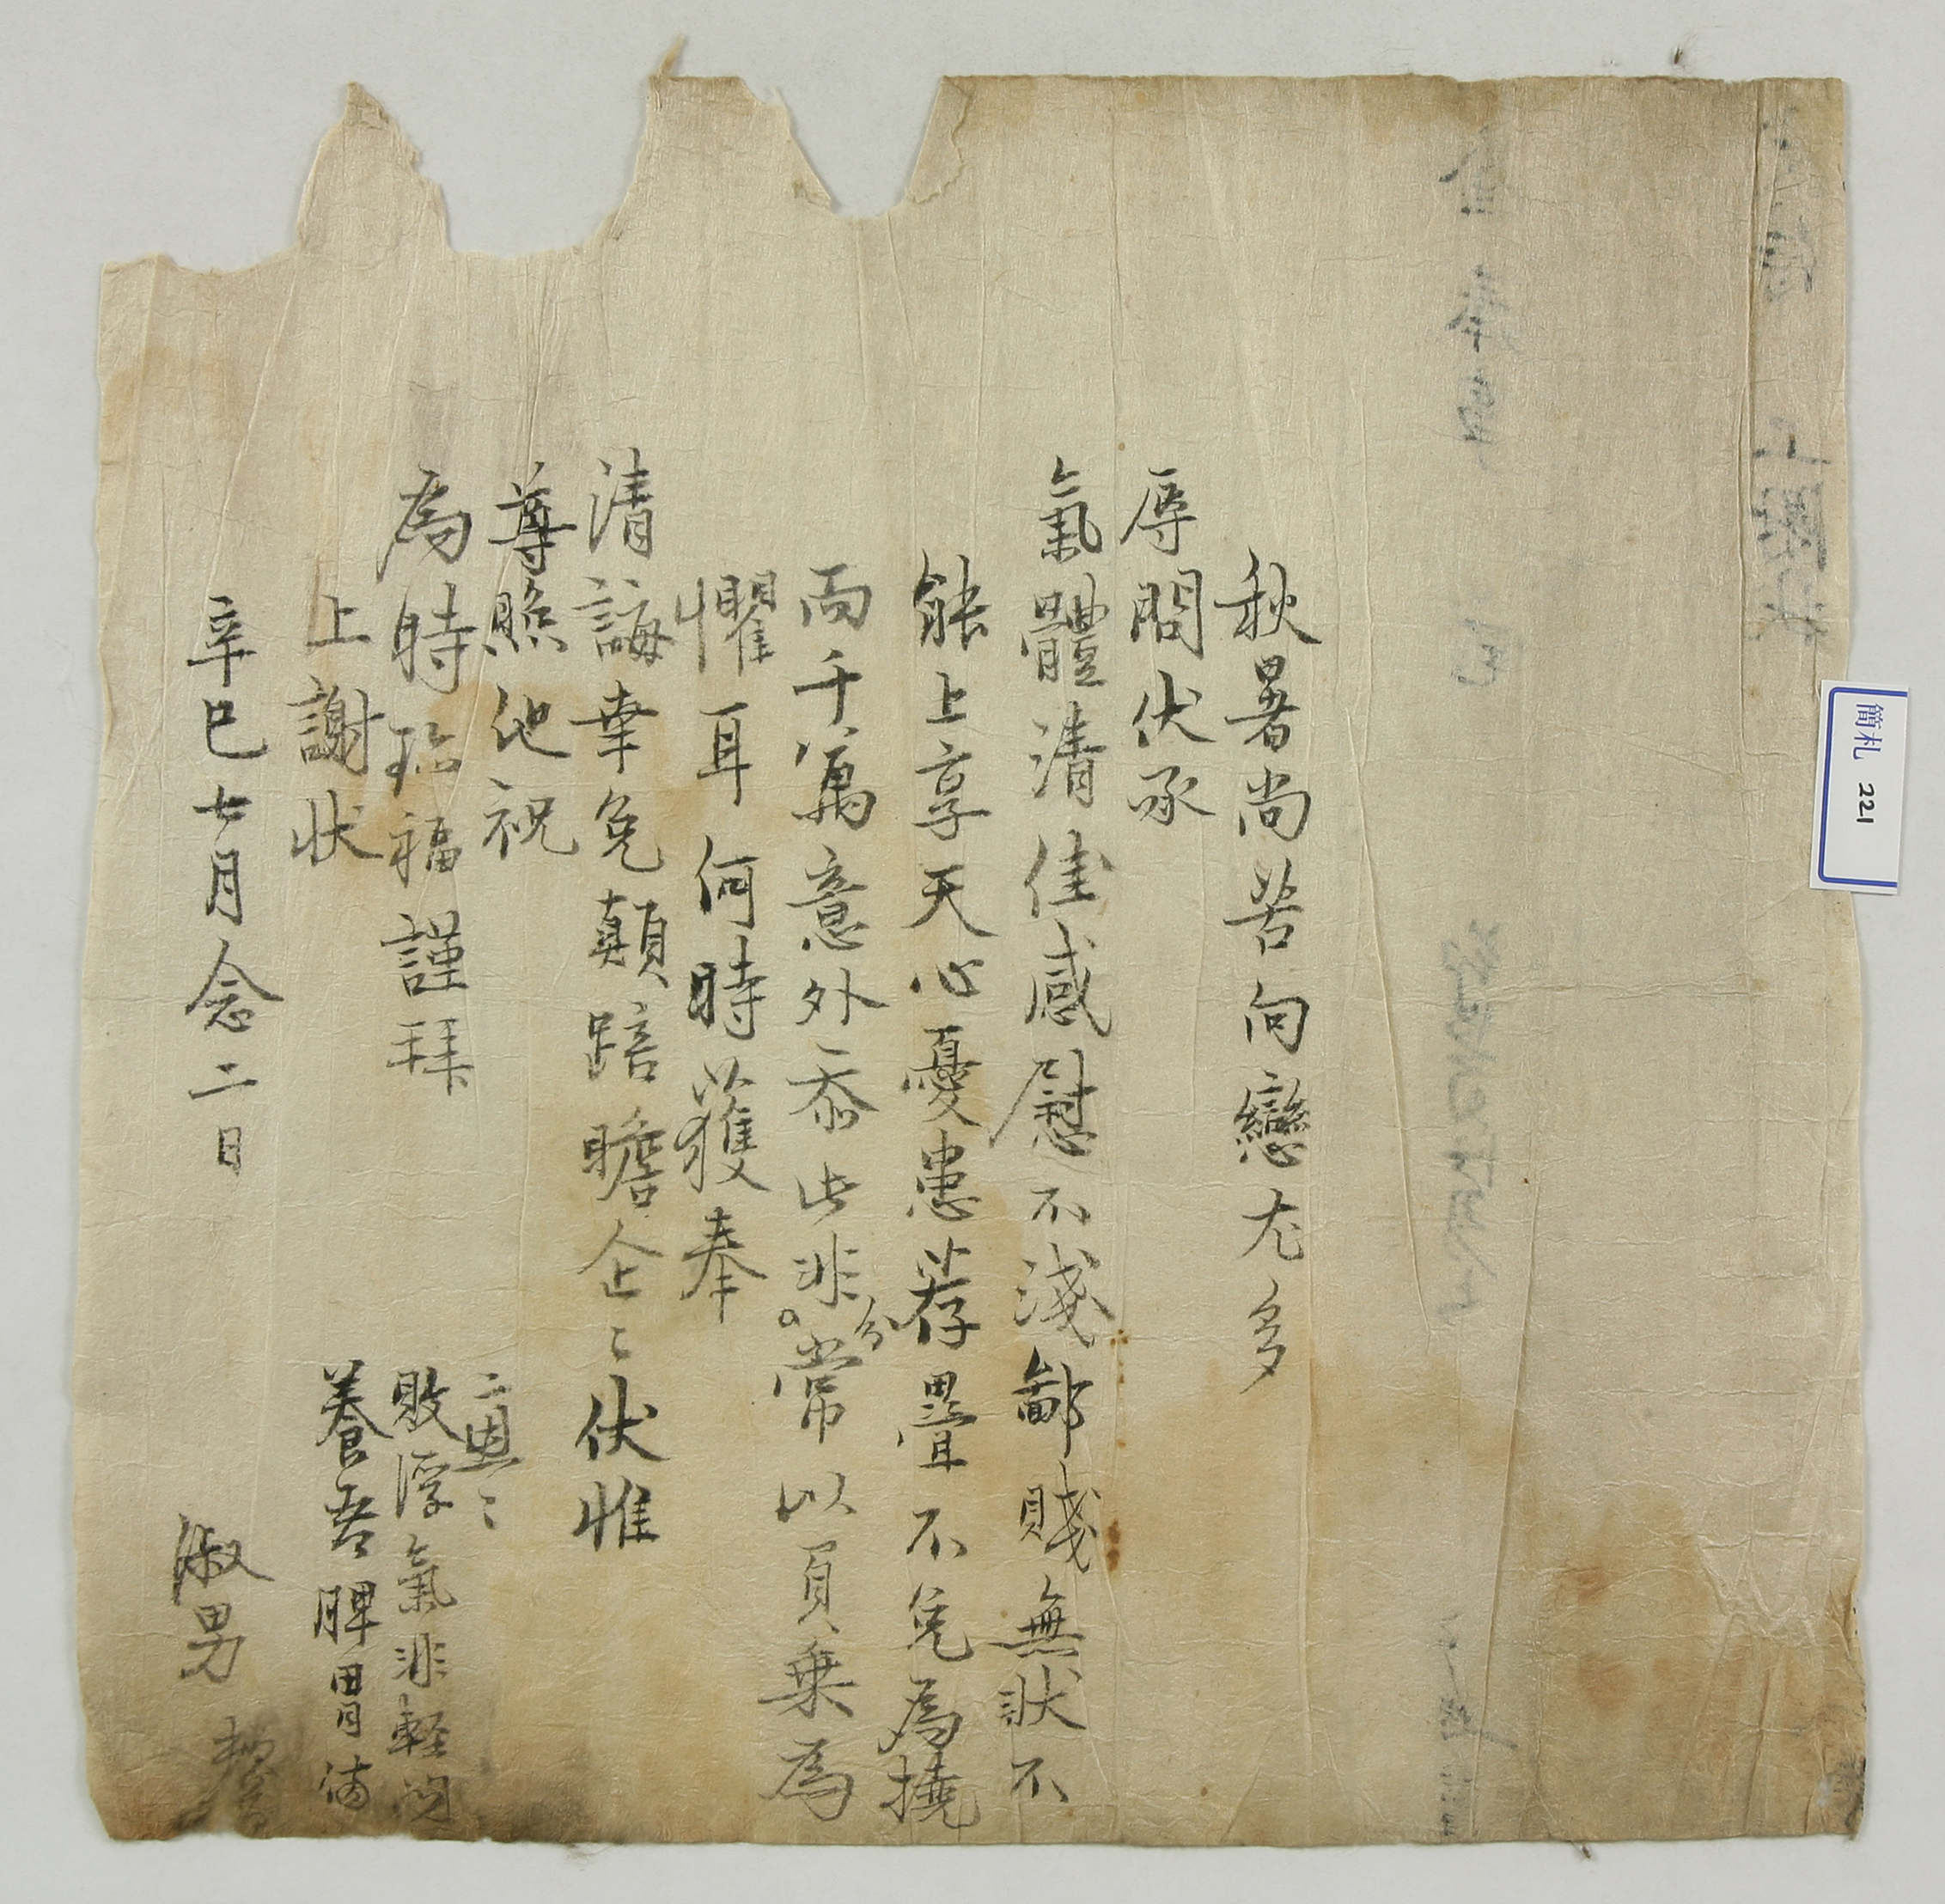 簡札 221
秋暑尚苦向戀尤多
辱問伏承
氣體淸佳感慰不淺鄙賤無狀不
能上享天心憂患荐疊不免爲撓
而千萬意外忝此非分常以負乗爲
懼耳何時獲奉
淸誨幸免顚踣瞻企〻伏惟
尊照他祝
爲時珍福謹拜
上謝狀
辛巳七月念二日
淑男
二惠〻
敗浮氣非輕
養吾脾胃